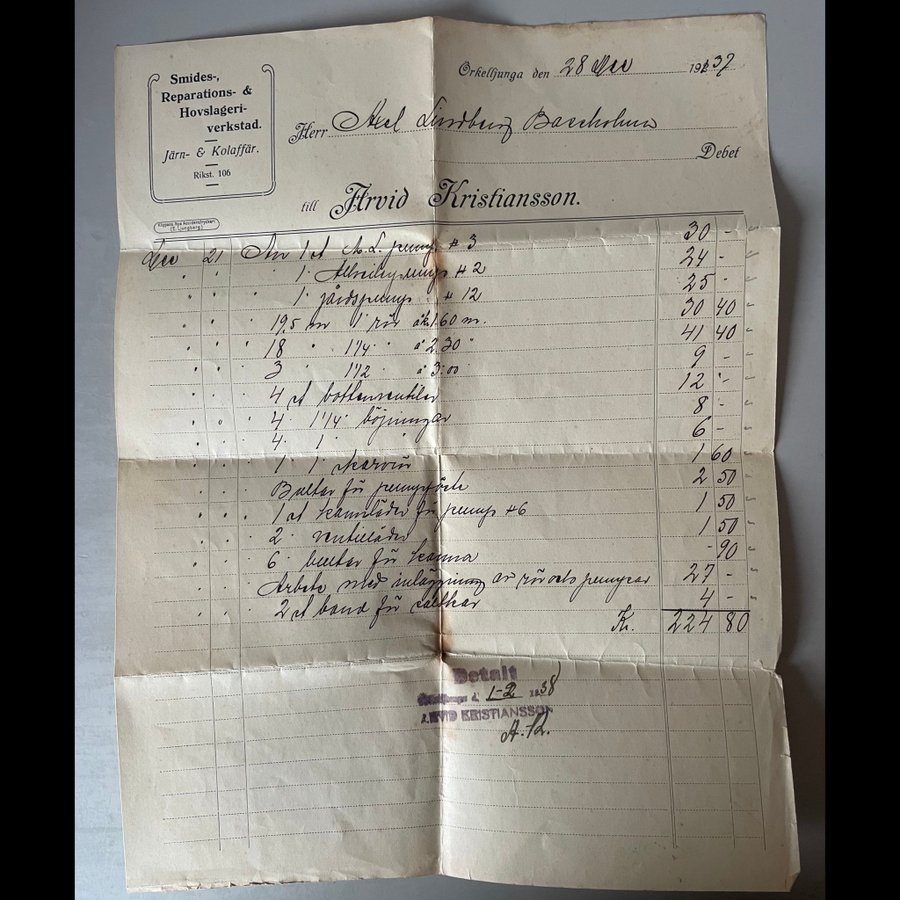 Smides-,
Reparations- &
Hovslageri-
verkstad.
Järn- & Kolaffär.
Rikst. 106
Örkelljunga den 28 Dec 1937
Herr Axel Lindberg
Debet
till Arvid Kristiansson.
Klippans Nya Accidenstryckeri
(E. Ljungberg)
Dec 21 An 1 st A. L. pump # 3 30 -
" " " 1 pump # 2 24 -
" " " 1 gårdspump # 12 25 -
" " " 19,5 m 1" rör à k 1.60 m. 30 40
" " " 18 " 1 1/4 " à 2.30 " 41 40
" " " 3 " 1 1/2 " à 3.00 " 9 -
" " " 4 st bottenventiler 12 -
" " " 4 " 1 1/4" böjningar 8 -
" " " 4 " 1 " " 6 -
" " " 1 1" 1 60
" " " Bultar för 2 50
" " " 1 st kannläder för pump # 6 1 50
" " " 2 " ventilläder 1 50
" " " 6 " bultar för kanna - 90
" " " Arbete med inläggning av rör och pumpar 27 -
" " " 2 st band för saltkar 4 -
Kr. 224 80
Betalt
Örkelljunga d. 1-2 1938
ARVID KRISTIANSSON